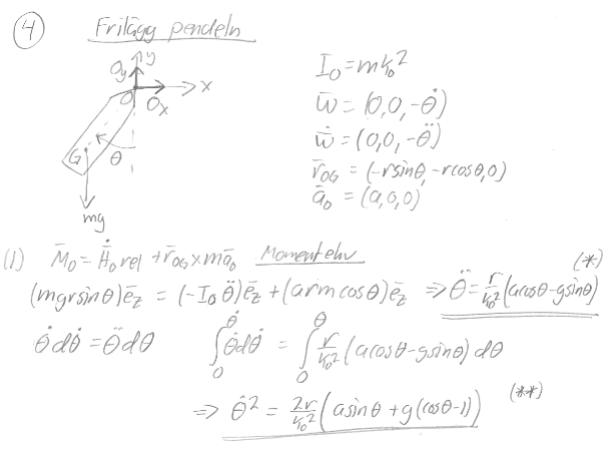 ④ Frilägg pendeln
y
O_y
O
O_x
x
G
θ
mg
I_o = mk_o²
ω̄ = (0,0,-θ̇)
ω̄̇ = (0,0,-θ̈)
r̄_OG = (-rsinθ, -rcosθ, 0)
ā_o = (a,0,0)
(1) M̄_o = H̄̇_o rel + r̄_OG × mā_o Momentekv
(mgrsinθ)ē_z = (-I_o θ̈)ē_z + (armcosθ)ē_z ⇒ θ̈ = r/k_o² (acosθ-gsinθ) (*)
θ̇dθ̇ = θ̈dθ ∫₀^θ̇ θ̇dθ̇ = ∫₀^θ r/k_o² (acosθ-gsinθ)dθ
⇒ θ̇² = 2r/k_o² (asinθ + g(cosθ-1)) (**)